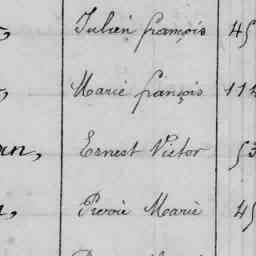 Julien françois 45
Marie françois 114
an, Ernest Victor 53
Pierre Marie 45